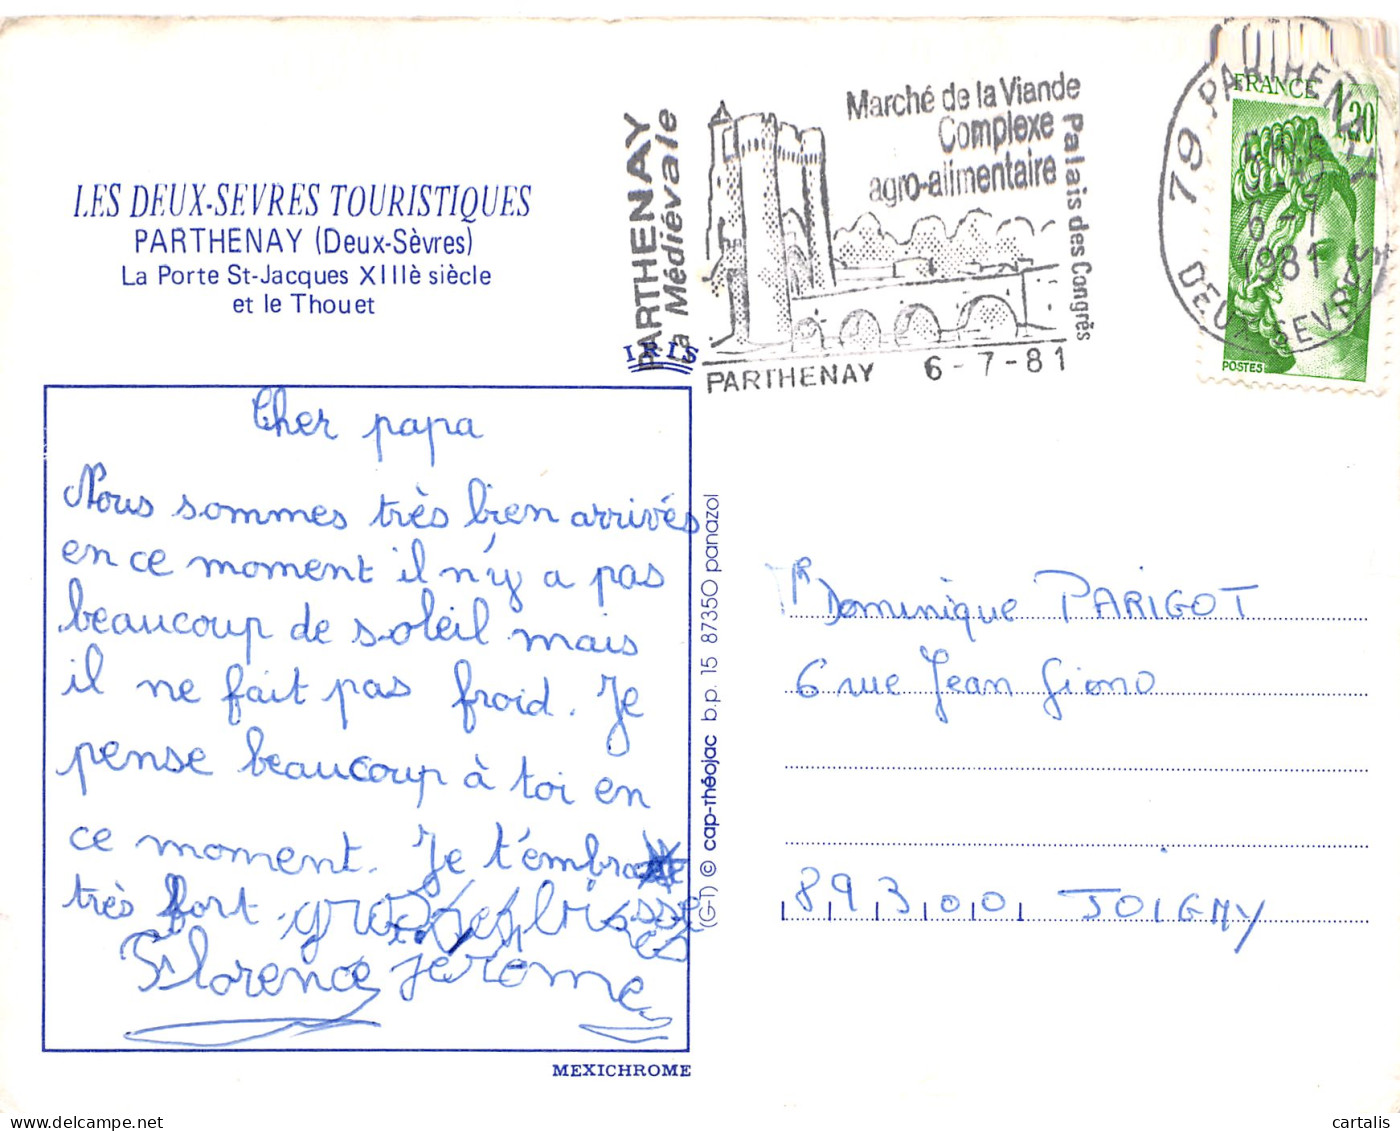 LES DEUX-SEVRES TOURISTIQUES
PARTHENAY (Deux-Sèvres)
La Porte St-Jacques XIIIè siècle
et le Thouet
IRIS
PARTHENAY
La Médiévale
Marché de la Viande
Complexe
agro-alimentaire
Palais des Congrès
PARTHENAY 6-7-81
79 PARTHENAY
6-7
1981
DEUX-SEVRES
FRANCE 1,20
POSTES
Cher papa
Nous sommes très bien arrivés
en ce moment il n'y a pas
beaucoup de soleil mais
il ne fait pas froid. Je
pense beaucoup à toi en
ce moment. Je t'embrasse
très fort. grosses bises
Florence Jérôme
MEXICHROME
(G-1) © cap-théojac b.p. 15 87350 panazol
Dominique PARIGOT
6 rue Jean Giono
89300 JOIGNY
cartalis
www.delcampe.net